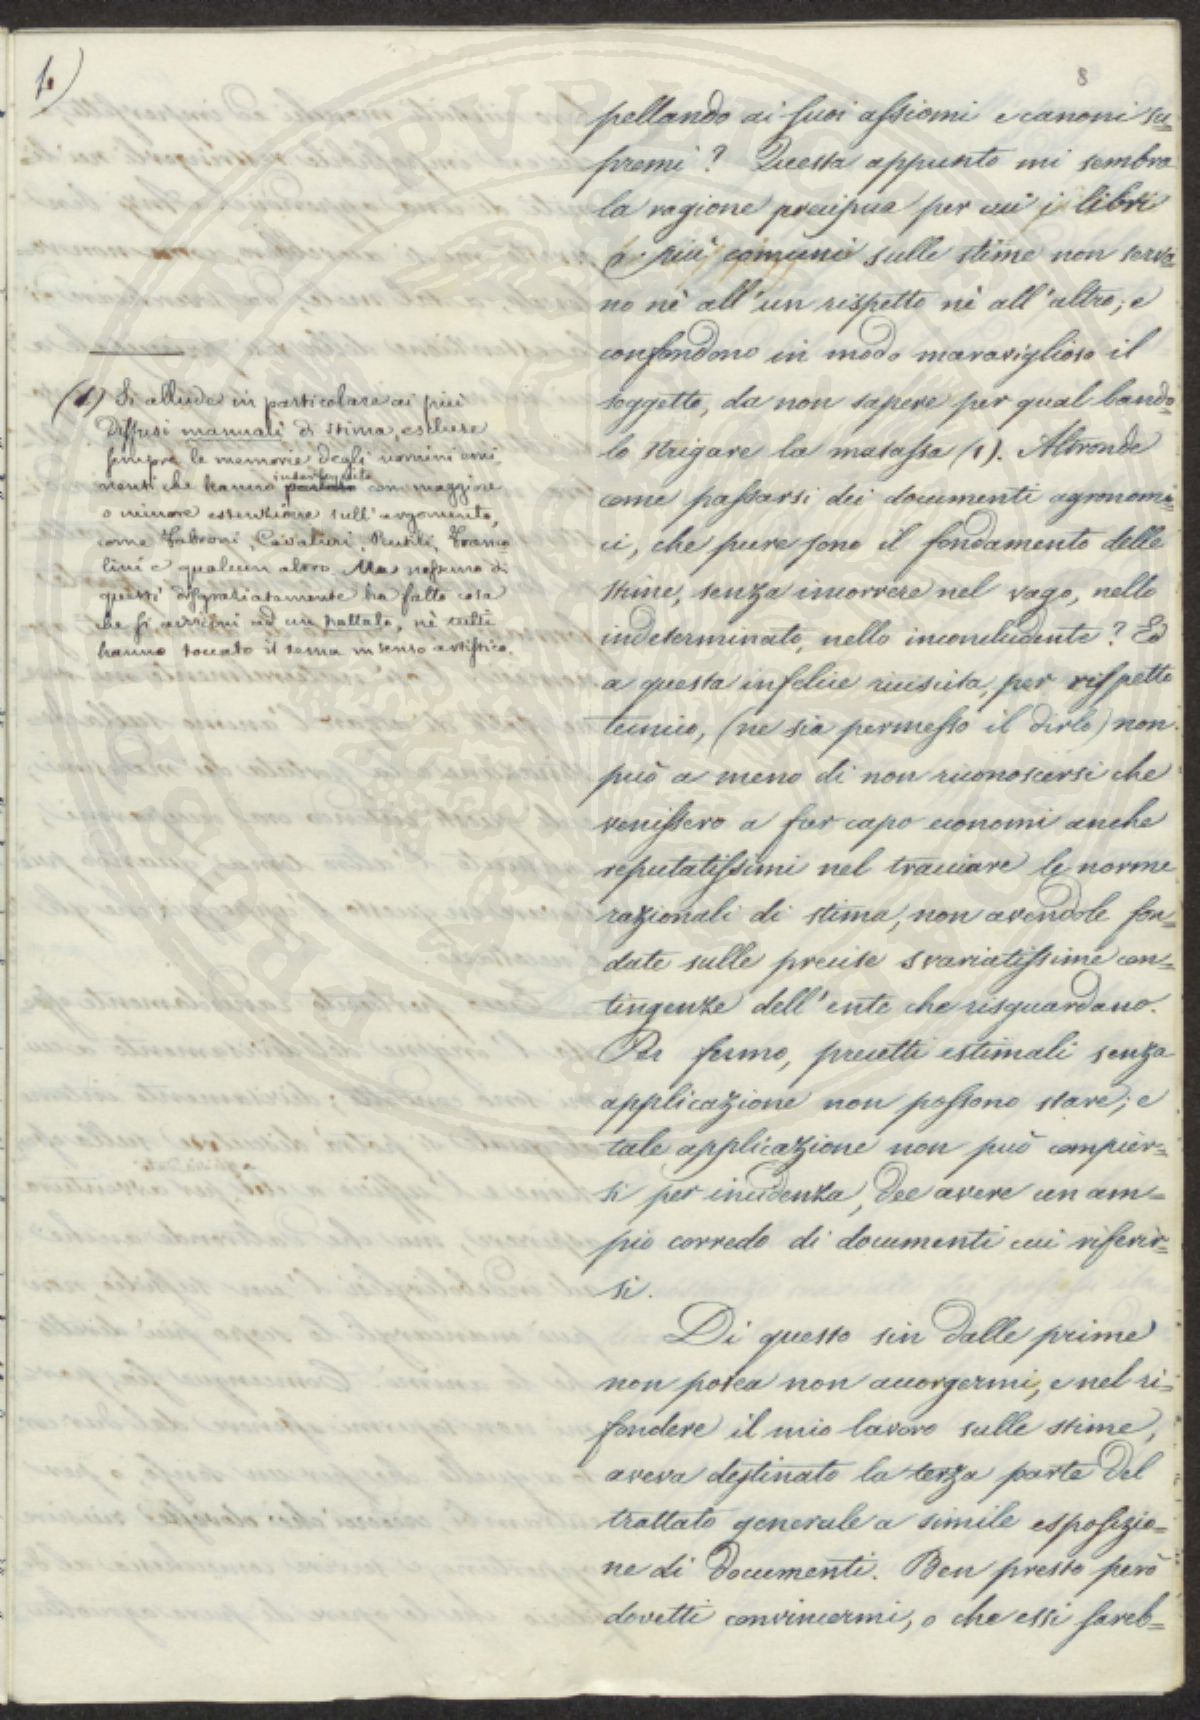 8
pellando ai suoi assiomi e canoni su=
premi? Questa appunto mi sembra
la ragione precipua per cui i libri
più comuni sulle stime non serva=
no nè all'un rispetto nè all'altro; e
confondono in modo maraviglioso il
soggetto, da non sapere per qual bando=
lo strigare la matassa (1). Altronde
come passarsi dei documenti agronomi=
ci, che pure sono il fondamento delle
stime, senza incorrere nel vago, nello
indeterminato, nello inconcludente? Ed
a questa infelice riuscita, per rispetto
tecnico, (ne sia permesso il dirlo) non
può a meno di non riconoscersi che
venissero a far capo economi anche
reputatissimi nel tracciare le norme
razionali di stima, non avendole fon=
date sulle precise svariatissime con=
tingenze dell'ente che risguardano.
Per fermo, precetti estimali senza
applicazione non possono stare; e
tale applicazione non può compier=
si per incidenza, dee avere un am=
pio corredo di documenti cui riferir=
si.
Di questo sin dalle prime
non potea non accorgermi, e nel ri=
fondere il mio lavoro sulle stime,
aveva destinato la terza parte del
trattato generale a simile esposizio=
ne di documenti. Ben presto però
dovetti convincermi, o che essi sareb=
(1) Si allude in particolare ai più
diffusi manuali di stima, escluse
sempre le memorie degli uomini emi
nenti che hanno parlato con maggiore
o minore estensione sull'argomento,
come Fabroni, Cavalieri,
lini e qualcun altro. Ma nessuno di
questi disgraziatamente ha fatto cosa
che si avvicini ad un trattato, nè tutti
hanno toccato il tema in senso artistico.